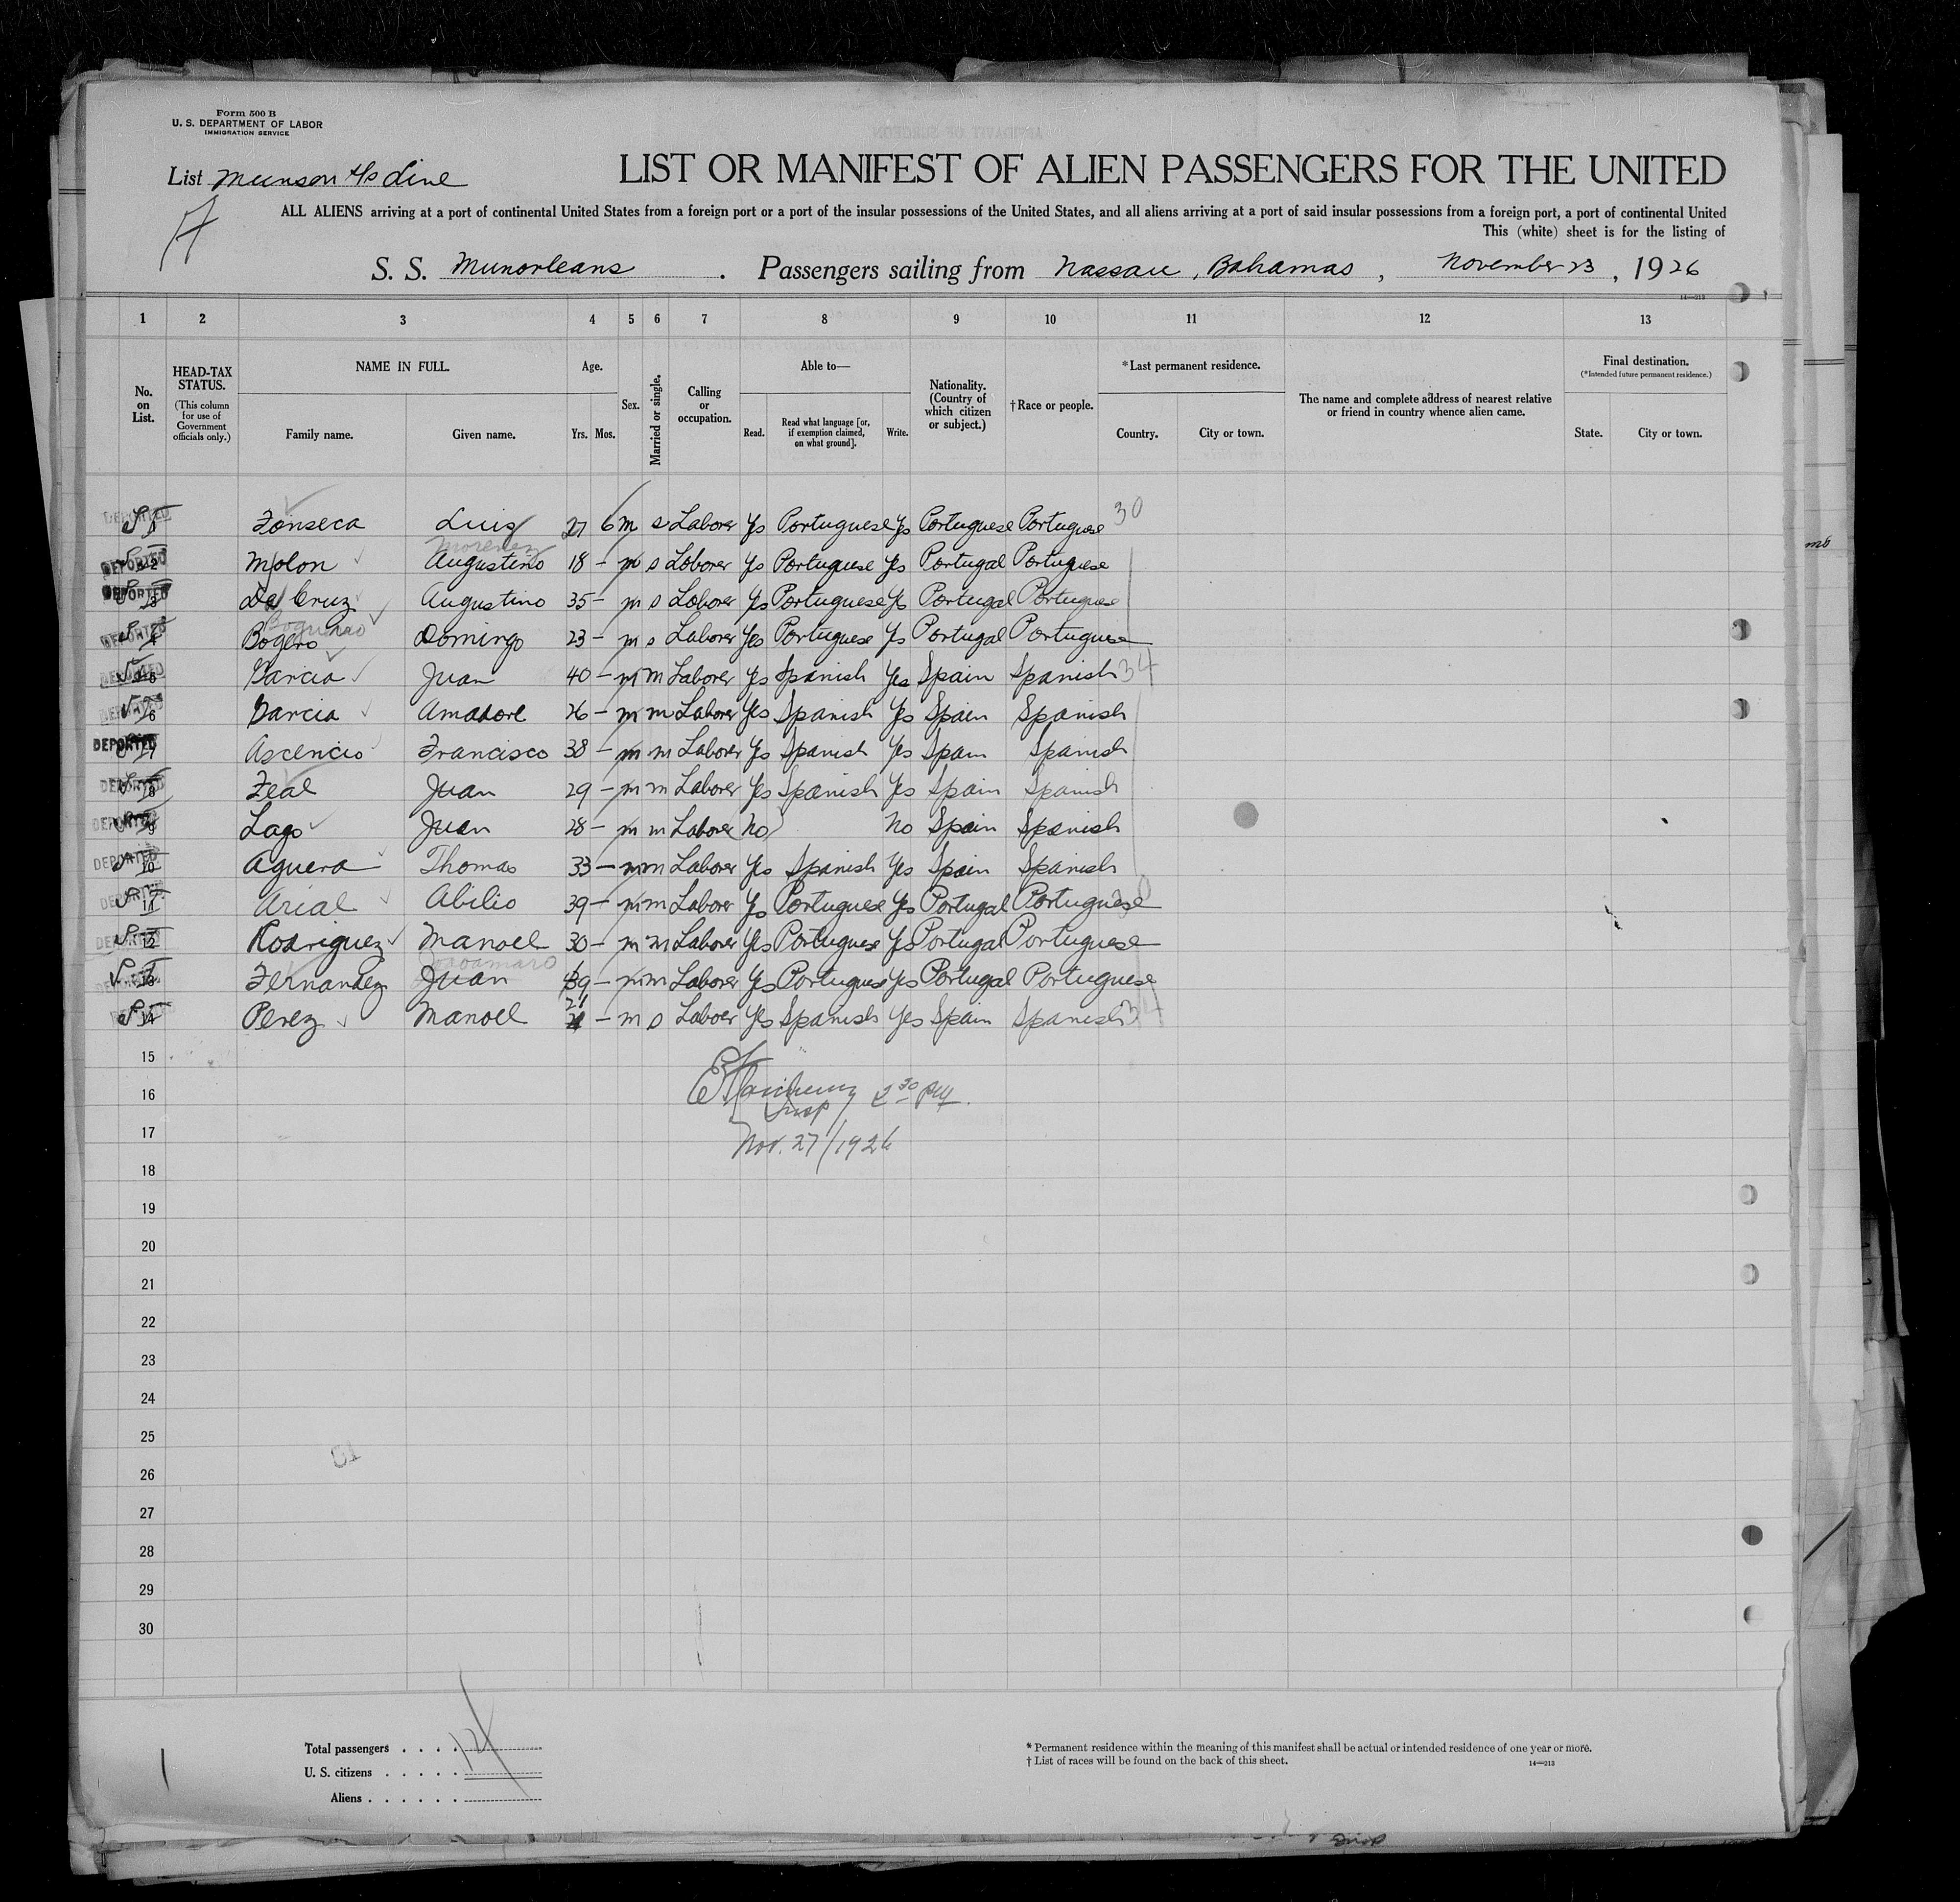 Form 500 B
U. S. DEPARTMENT OF LABOR
IMMIGRATION SERVICE
List Munson S/s Line
LIST OR MANIFEST OF ALIEN PASSENGERS FOR THE UNITED
ALL ALIENS arriving at a port of continental United States from a foreign port or a port of the insular possessions of the United States, and all aliens arriving at a port of said insular possessions from a foreign port, a port of continental United
This (white) sheet is for the listing of
S. S. Munorleans . Passengers sailing from Nassau, Bahamas , November 23 , 1926
14—213
1 2 3 4 5 6 7 8 9 10 11 12 13
No. on List.
HEAD-TAX STATUS.
(This column for use of Government officials only.)
NAME IN FULL.
Family name. Given name.
Age.
Yrs. Mos.
Sex.
Married or single.
Calling or occupation.
Able to—
Read. Read what language [or, if exemption claimed, on what ground]. Write.
Nationality. (Country of which citizen or subject.)
†Race or people.
*Last permanent residence.
Country. City or town.
The name and complete address of nearest relative or friend in country whence alien came.
Final destination.
(*Intended future permanent residence.)
State. City or town.
DEPORTED 1 Fonseca Luis 27 6 m s Laborer Yes Portuguese Yes Portuguese Portuguese 30
Morenez
DEPORTED 2 Molon Augustino 18 – m s Laborer Yes Portuguese Yes Portugal Portuguese
DEPORTED 3 Da Cruz Augustino 35 – m s Laborer Yes Portuguese Yes Portugal Portuguese
DEPORTED 4 Bogero Domingo 23 – m s Laborer Yes Portuguese Yes Portugal Portuguese
DEPORTED 5 Garcia Juan 40 – m m Laborer Yes Spanish Yes Spain Spanish 34
DEPORTED 6 Garcia Amadore 26 – m m Laborer Yes Spanish Yes Spain Spanish
DEPORTED 7 Ascencio Francisco 38 – m m Laborer Yes Spanish Yes Spain Spanish
DEPORTED 8 Feal Juan 29 – m m Laborer Yes Spanish Yes Spain Spanish
DEPORTED 9 Lago Juan 28 – m m Laborer No No Spain Spanish
DEPORTED 10 Aguera Thomas 33 – m m Laborer Yes Spanish Yes Spain Spanish
DEPORTED 11 Arial Abilio 39 – m m Laborer Yes Portuguese Yes Portugal Portuguese 30
DEPORTED 12 Rodriguez Manoel 30 – m m Laborer Yes Portuguese Yes Portugal Portuguese
DEPORTED 13 Fernandez Juan 39 – m m Laborer Yes Portuguese Yes Portugal Portuguese
DEPORTED 14 Perez Manoel 21 – m s Laboer Yes Spanish Yes Spain Spanish 34
15
16 2 30 PM.
Insp
17 Nov. 27/1926
18
19
20
21
22
23
24
25
26
27
28
29
30
Total passengers . . . . 14
U. S. citizens . . . . .
Aliens . . . . . .
* Permanent residence within the meaning of this manifest shall be actual or intended residence of one year or more.
† List of races will be found on the back of this sheet.
14—213